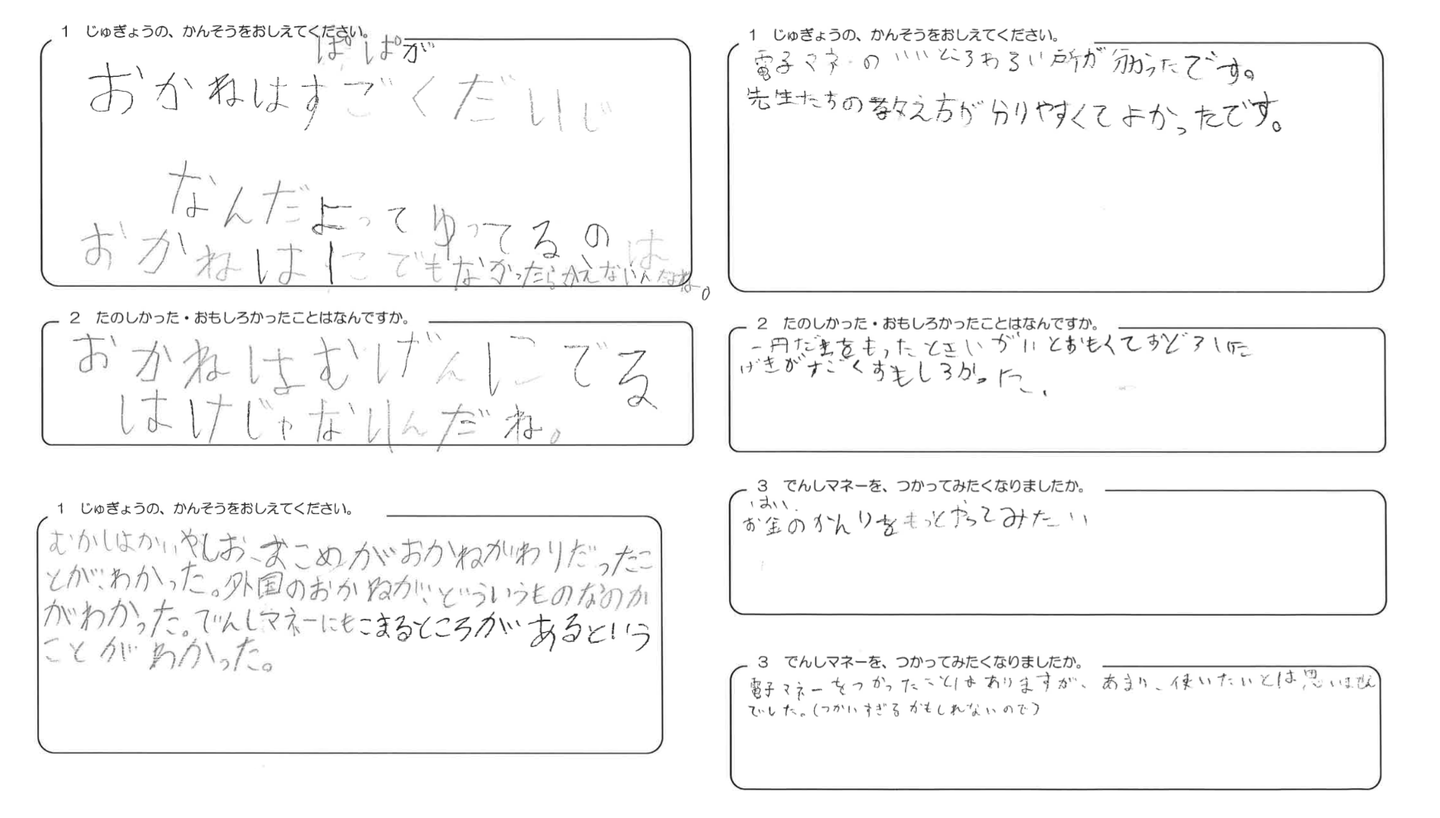 1 じゅぎょうの、かんそうをおしえてください。
ぱぱが
おかねはすごくだいじ
なんだよってゆってるの
おかねはにこでもなかったらかえないんだね。
2 たのしかった・おもしろかったことはなんですか。
おかねはむげんにでる
はけじゃないんだね。
1 じゅぎょうの、かんそうをおしえてください。
むかしはかいやしお、おこめがおかねがわりだったこ
とが、わかった。外国のおかねが、どういうものなのか
がわかった。でんしマネーにもこまるところがあるという
ことがわかった。
1 じゅぎょうの、かんそうをおしえてください。
電子マネーのいいところわるい所が分かったです。
先生たちの教え方が分りやすくてよかったです。
2 たのしかった・おもしろかったことはなんですか。
一円だまをもったときいがいとおもくておどろいた
げきがすごくおもしろかった。
3 でんしマネーを、つかってみたくなりましたか。
はい、
お金のかんりをもっとやってみたい
3 でんしマネーを、つかってみたくなりましたか。
電子マネーをつかったことはありますが、あまり、使いたいとは思いません
でした。(つかいすぎるかもしれないので)